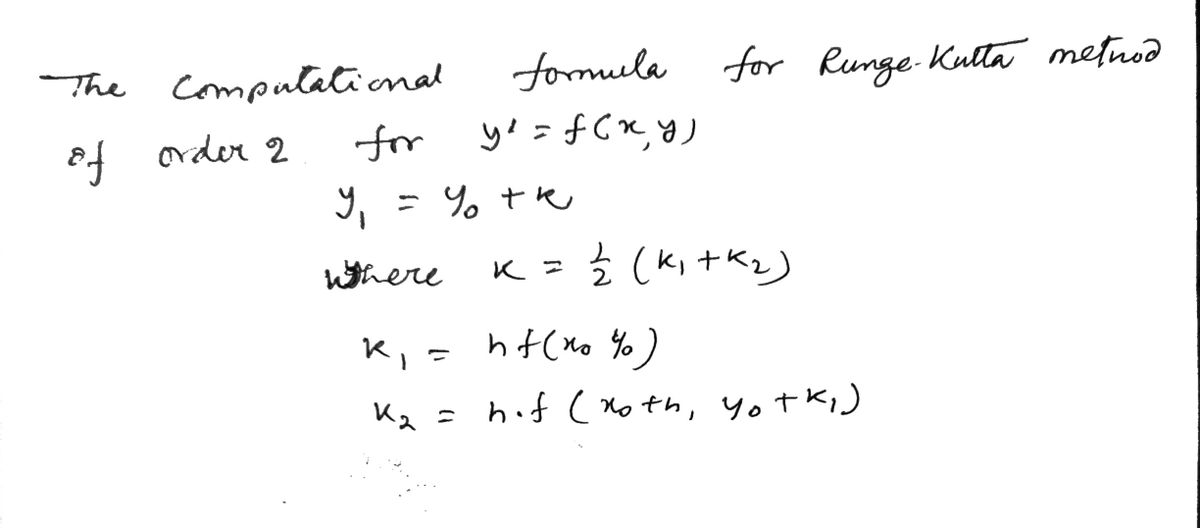 The Computational formula for Runge-Kutta method
of order 2 for y' = f(x, y)
y₁ = y₀ + k
where K = ½ (K₁ + K₂)
K₁ = h f(x₀ y₀)
K₂ = h.f (x₀+h, y₀+K₁)